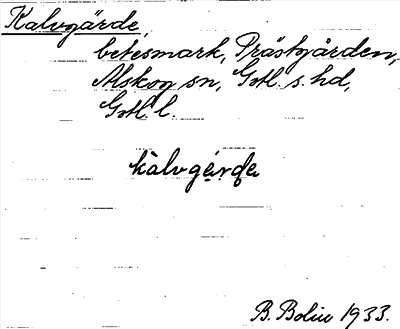 Kalvgärde,
betesmark, Prästgården,
Alskog sn, Gotl. s. hd,
Gotl. l.
kàlvgǻrda
B. Bolin 1933.